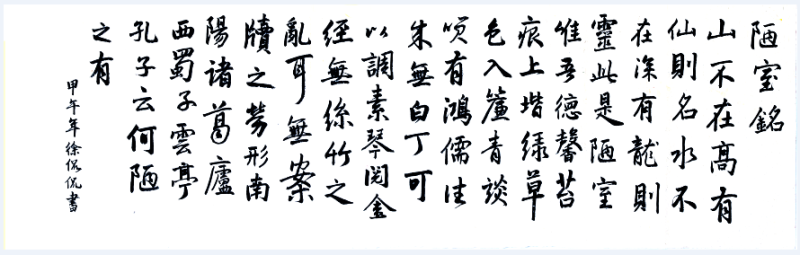 陋室銘
山不在高有
仙則名水不
在深有龍則
靈此是陋室
惟吾德馨苔
痕上堦緑草
色入簾青談
咲有鴻儒往
来無白丁可
以調素琴閲金
經無絲竹之
亂耳無案
牘之勞形南
陽諸葛廬
西蜀子雲亭
孔子云何陋
之有
甲午年徐侃侃書